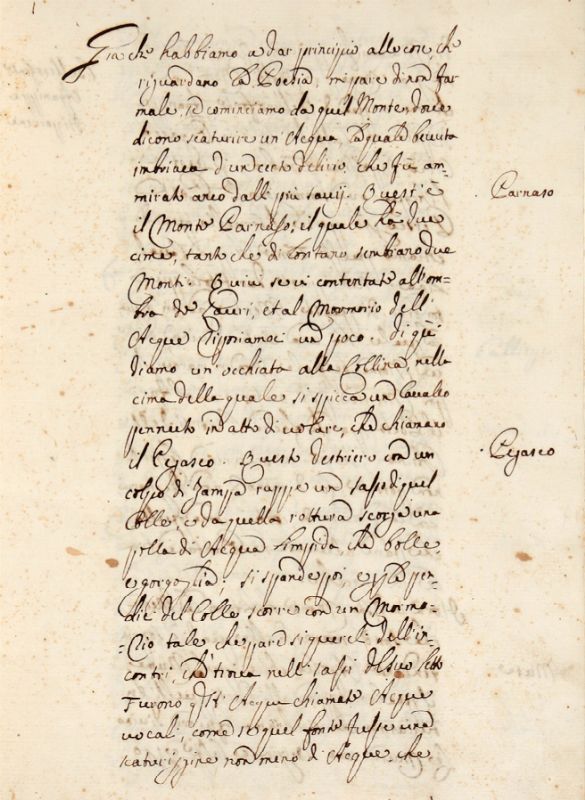 Già che habbiamo a dar principio alle cose, che
riguardano la Poesia, mi pare di non far
male, se cominciamo da quel Monte, dove
dicono scaturire un'Acqua, la quale bevuta
imbriaca d'un certo delirio, che fù am-
mirato anco dalli più savij. Quest'è
il Monte Parnaso; il quale hà due
cime, tanto che di lontano sembrano due
Monti. Quivi se vi contentate all'om-
bra de Lauri, et al Mormorio dell'
Acque riposiamoci un poco. Di quì
diamo un'occhiata alla Collina, nella
cima della quale si spicca un Cavallo
pennuto in atto di volare, che chiamano
il Pegaseo. Questo destriero con un
colpo di Zampa ruppe un sasso di quel
Colle, e da quella rottura scorga una
polla di Acqua limpida, che bolle,
e gorgoglia; si spande poi e per le pen-
dici del Colle scorre con un Mormo-
rio tale, che par si quereli dell'in-
contri, che trova nelli sassi del suo letto
Furono queste Acque chiamate Acque
vocali, come se quel fonte fusse una
scaturiggine non meno di Acque, che
Parnaso
Pegaseo